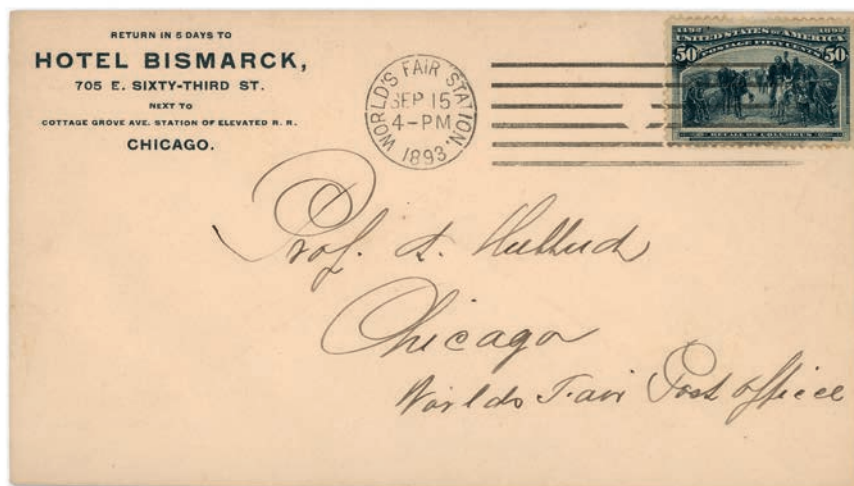 RETURN IN 5 DAYS TO
HOTEL BISMARCK,
705 E. SIXTY-THIRD ST.
NEXT TO
COTTAGE GROVE AVE. STATION OF ELEVATED R. R.
CHICAGO.
WORLD'S FAIR STATION.
SEP 15
4-PM
1893
1492 1892
UNITED STATES OF AMERICA
50 POSTAGE FIFTY CENTS 50
RECALL OF COLUMBUS
Prof.
Chicago
Worlds Fair Post office